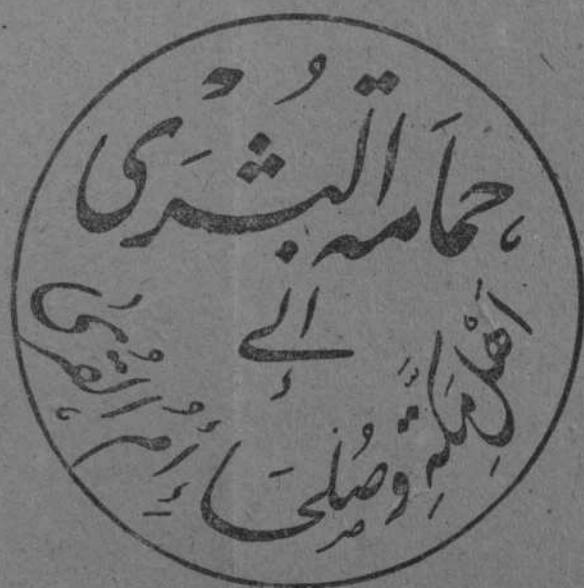 حَمَامَة البُشْرَى
إلى
أَهْلِ مَكَّةَ وَصُلَحَاءِ أُمِّ القُرَى